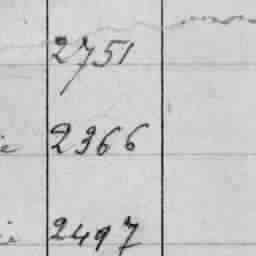 2751
2366
2497